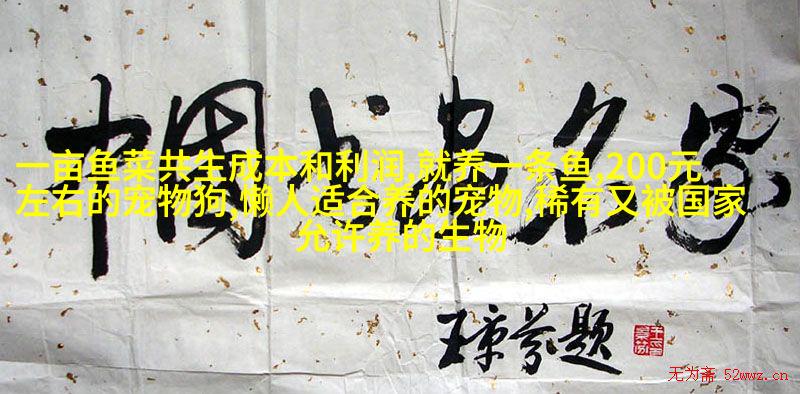 中国书画名家
一亩鱼菜共生成本和利润,就养一条鱼,200元
左右的宠物狗,懒人适合养的宠物,稀有又被国家
允许养的生物
王京芬题
无为斋 52wwz.cn